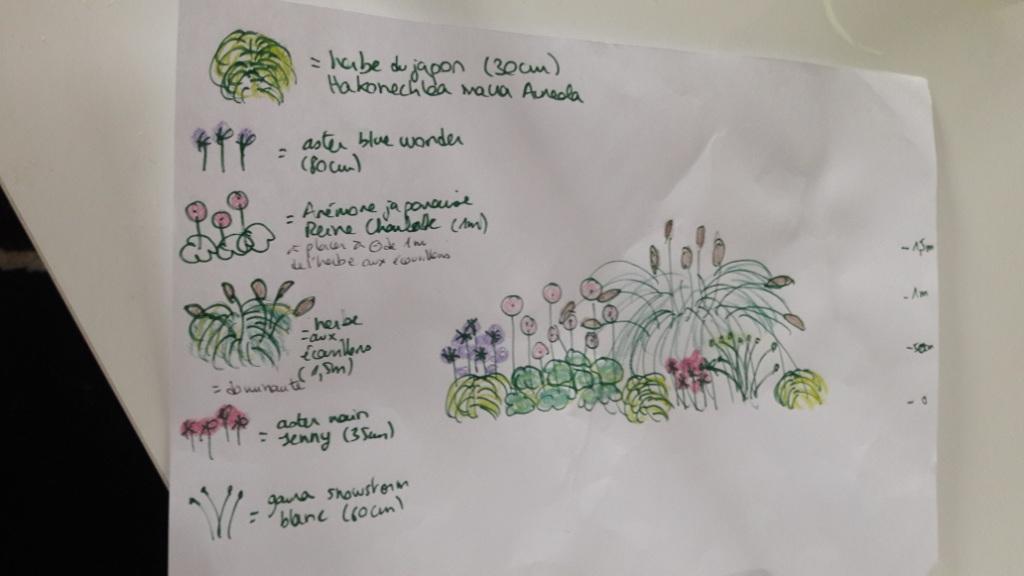 = herbe du japon (30cm)
Hakonechloa macra Aureola
= aster blue wonder
(80cm)
= Anémone japonaise
Reine Charlotte (1m)
placer à 1m
de l'herbe aux écouvillons
= herbe
aux
écouvillons
(1,5m)
= dominante
= aster nain
Jenny (35cm)
= gaura snowstorm
blanc (60cm)
- 1,5m
- 1m
- 50cm
- 0